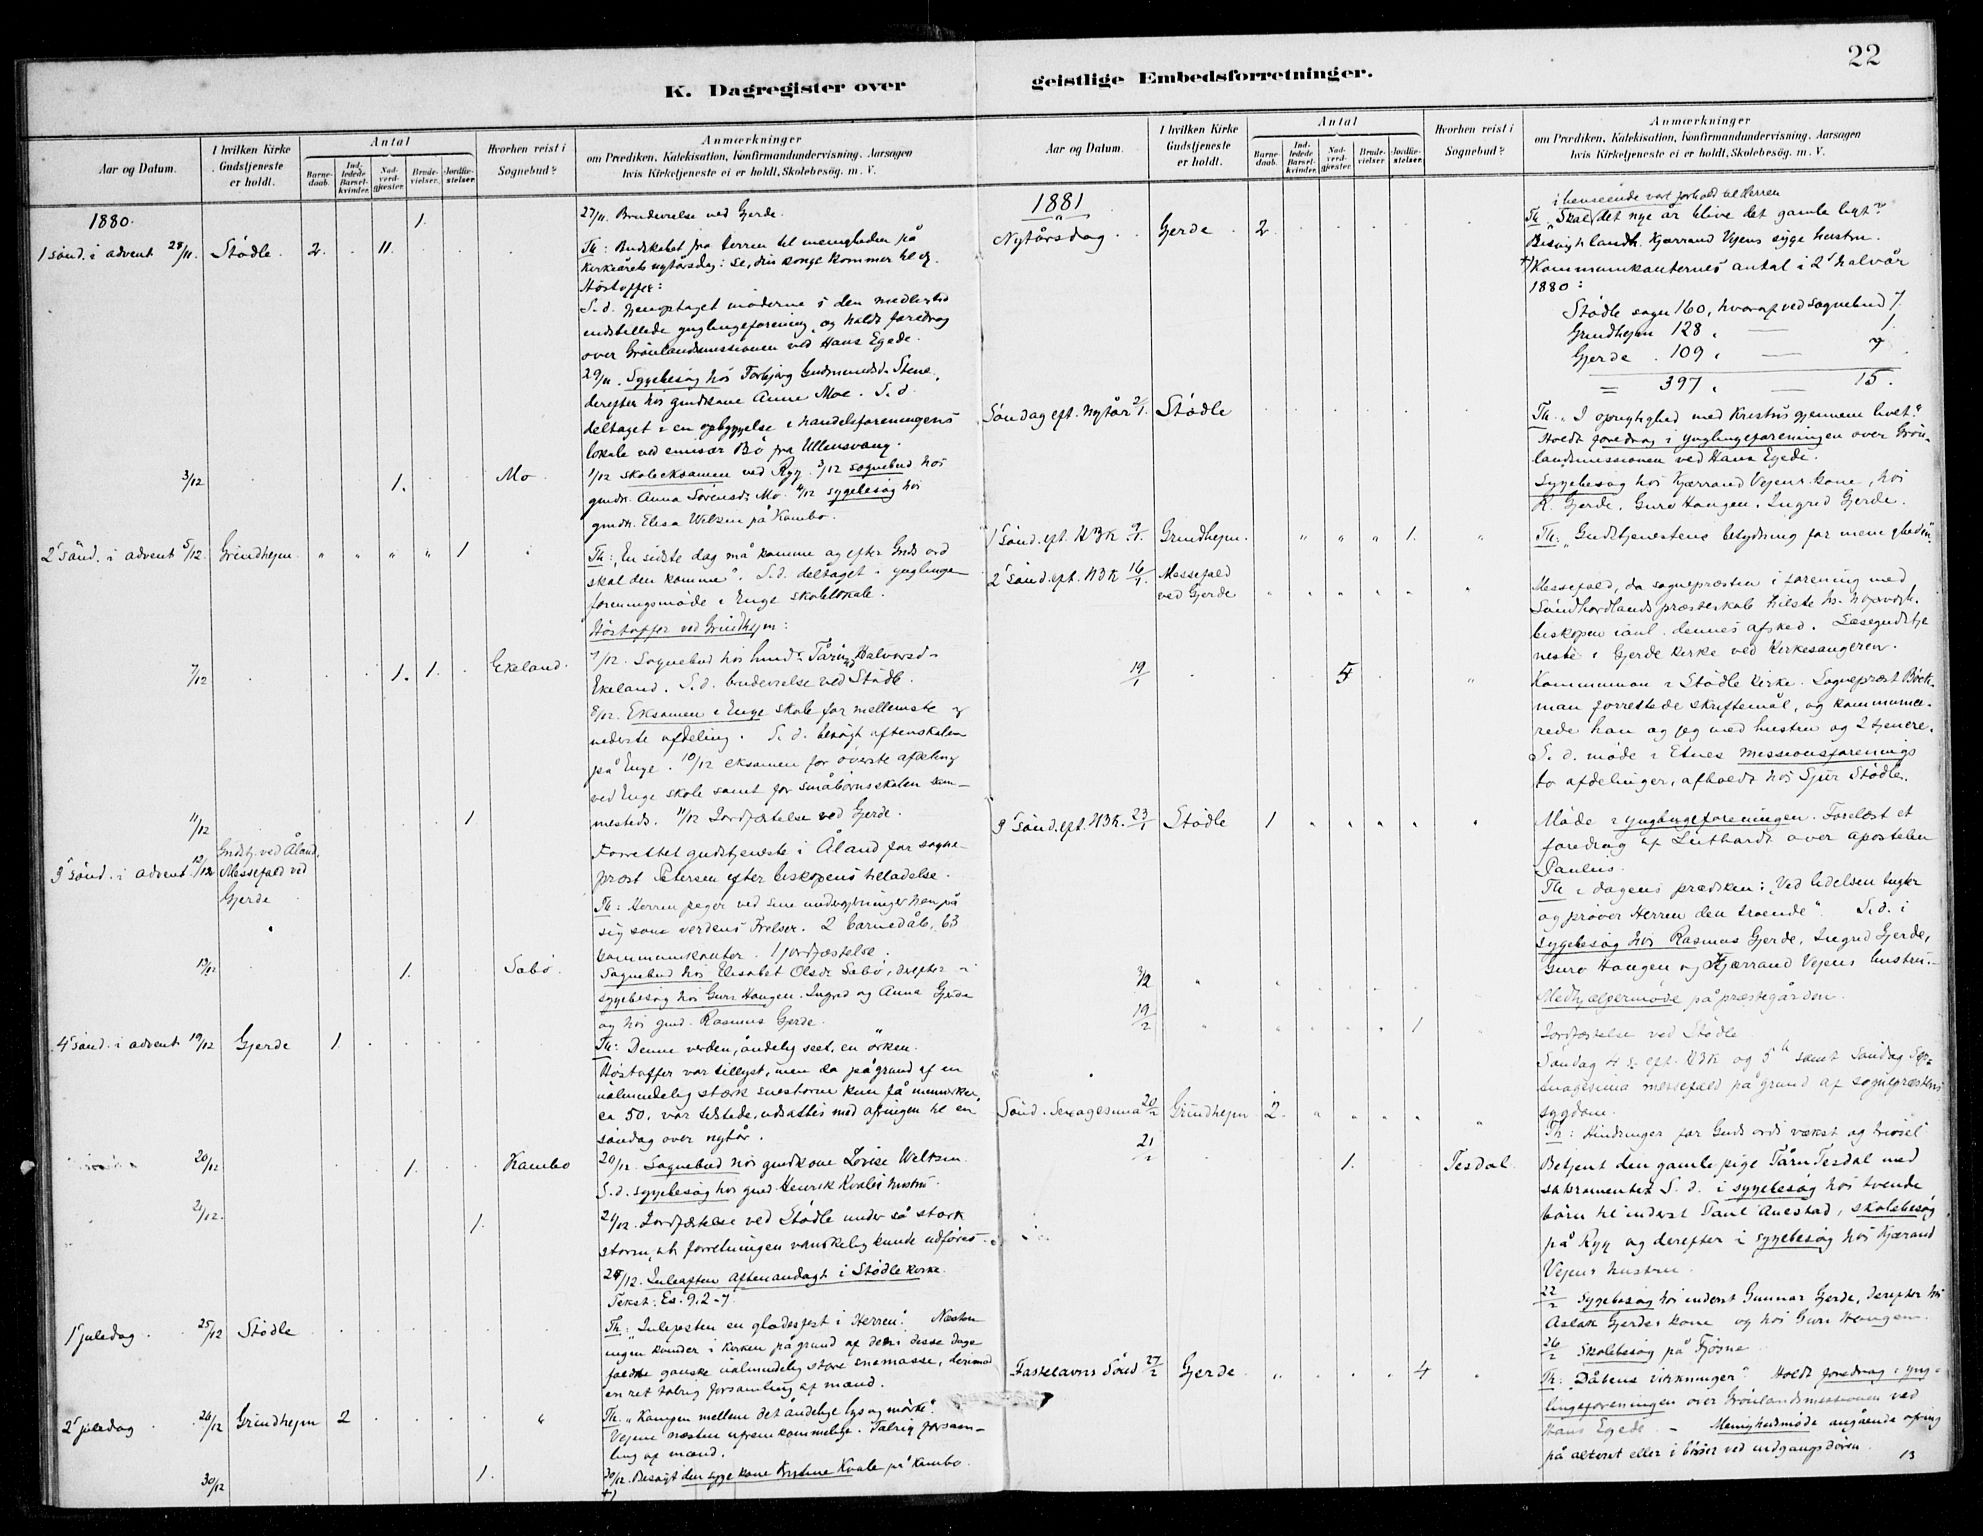 22
K. Dagregister over geistlige Embedsforretninger.
Aar og Datum.
I hvilken Kirke Gudstjeneste er holdt.
Antal
Barnedaab.
Indledede Barselkvinder.
Nadverdgjæster.
Brudevielser.
Jordfæstelser.
Hvorhen reist i Sognebud?
Anmærkninger
om Prædiken, Katekisation, Konfirmandundervisning, Aarsagen
hvis Kirketjeneste ei er holdt, Skolebesøg, m. V.
1880. 1. 27/11. Brudevielse ved Gjerde.
1 sönd. i advent 28/11 Stødle. 2. 11. Th: Budskabet fra Herren til menigheden på
kirkeårets nytårsdag: Se, din konge kommer til dig.
Höstoffer:
S. d. gjenoptaget möderne i den
indstillede ynglingeforening, og holdt foredrag
over Grönlandsmissionen ved Hans Egede.
29/11. Sygebesög hos Torbjörg Gudmundsd. Stene,
derefter hos gmdkone Anne Moe. S. d.
deltaget i en opbyggelse i handelsforeningens
lokale ved emisær Bö fra Ullensvang.
3/12 1. Mo 1/12 skoleeksamen ved Ryg. 3/12 sognebud hos
gmdk. Anna Sörensd. Mo. 4/12 sygebesög hos
gmdk. Elesa Welsen på Kambo.
2' sönd. i advent 5/12. Grindhejm. " " " " 1 Th: "En sidste dag må komme og efter Guds ord
skal den komme". S. d. deltaget i ynglinge-
foreningsmöde i Enge skolelokale.
Höstoffer ved Grindhejm:
7/12 1. 1. Ekeland. 7/12. Sognebud hos Halvorsd.
Ekeland. S. d. brudevielse ved Stödle.
8/12. Eksamen i Enge skole for mellemste og
nederste afdeling. S. d. besögt aftenskolen
på Enge. 10/12 eksamen for överste afdeling
ved Enge skole samt for småbörnsskolen sam-
11/12 1. mesteds. 11/12 Jordfæstelse ved Gjerde.
3' sönd. i advent 12/12 Gudstj. ved Åland, Messefald ved Gjerde
Forrettet gudstjeneste i Åland for sogne-
prest Petersen efter biskopens tilladelse.
Th: Herren peger ved sine undergjerninger hen på
sig som verdens Frelser. 2 barnedåb, 63
kommunikanter. 1 jordfæstelse.
13/12 1. Sabö. Sognebud hos Elisabet Olsdr Sabö, derefter i
sygebesög hos Guro Haugen, Ingrid og Anna Gjerde
og hos gmd. Rasmus Gjerde.
4' sönd. i advent 19/12 Gjerde 1. Th: Denne verden, åndelig seet, en örken.
Höstoffer var tillyst, men da på grund af en
ualmindelig stærk snestorm kun få mennesker,
ca 50, var tilstede, udsattes med ofringen til en
söndag over nytår.
20/12 1. Kambo 20/12. Sognebud hos gmdkone Lovise Weltsen.
S. d. sygebesög hos gmd Henrik Kvales hustru.
21/12. 1. 21/12. Jordfæstelse ved Stödle under så stærk
storm, at forretningen vanskelig kunde udföres.
24/12. Juleaften aftenandagt i Stödle kirke.
Tekst: Es. 9, 2-7
1' juledag 25/12 Stödle Th: "Julefesten en glædesfest i Herren". Næsten
ingen kvinder i kirken på grund af den i disse dage
faldne ganske ualmindelig store snemasse, derimod
en ret talrig forsamling af mænd.
2' juledag 26/12 Grindhejm 2 " Th. "Kampen mellem det åndelige lys og mörke".
Vejene næsten ufremkommelige. Talrig forsam-
ling af mænd.
30/12 1. 30/12. Besögt den syge kone Kvale på Kambo.
+)
Aar og Datum.
I hvilken Kirke Gudstjeneste er holdt.
Antal
Barnedaab.
Indledede Barselkvinder.
Nadverdgjæster.
Brudevielser.
Jordfæstelser.
Hvorhen reist i Sognebud?
Anmærkninger
om Prædiken, Katekisation, Konfirmandundervisning, Aarsagen
hvis Kirketjeneste ei er holdt, Skolebesög, m. V.
1881
i henseende vort forhold til Herren
Nytårsdag Gjerde 2. Th. "Skal det nye år blive det gamle ligt?"
Besögt Kjærrand Vejens syge hustru.
+) Kommunikanternes antal i 2' halvår
1880:
Stödle sogn 160, hvoraf ved sognebud 7.
Grindhejm 128 " — 1.
Gjerde 109 " — 7
= 397 " — 15.
Söndag eft. nytår 2/1. Stödle Th. "I oprigtighed med Kristus gjennem livet."
Holdt foredrag i ynglingeforeningen over Grön-
landsmissionen ved Hans Egede.
Sygebesög hos Kjærrand Vejens kone, hos
R. Gjerde, Guro Haugen, Ingrid Gjerde.
1' sönd. eft. H3K 9/1. Grindhejm. " " " 1. " Th: "Gudstjenestens betydning for menigheden".
2' sönd. eft. H3K 16/1. Messefald ved Gjerde " " " " " " Messefald, da sognepræsten i forening med
Söndhordlands præsteskab hilste
biskopen ianl. dennes afsked. Læsegudstje
neste i Gjerde kirke ved kirkesangeren.
19/1 5 " Kommunion i Stödle kirke. Sogneprest Böck-
man forrettede skriftemål, og kommunice-
rede han og jeg med hustru og 2 tjenere.
S. d. möde i Etnes missionsforenings
to afdelinger, afholdt hos Sjur Stödle.
3' sönd. eft. H3K. 23/1 Stödle 1 " " " " " Möde i ynglingeforeningen. Forelæst et
foredrag af Luthardt over apostelen
Paulus.
Th i dagens prædiken: "Ved lidelsen lugter
og pröver Herren den troende". S. d. i
sygebesög hos Rasmus Gjerde, Ingrid Gjerde,
Guro Haugen og Kjærrand Vejens hustru.
3/2 " " " " " Medhjælpermöde på præstegården.
19/2 " " " " " 1 " Jordfæstelse ved Stödle
Söndag 4 s. eft. H3K og 5te samt Söndag Sep-
tuagesima messefald på grund af sognepræstens
sygdom.
Sönd. Sexagesima 20/2 Grindhejm 2. " " " " " Th: Hindringer for Guds ords vækst og trivsel
21/2 1. Tesdal. Betjent den gamle pige Tesdal med
sakramentet. S. d. i sygebesög hos tvende
börn til inderst Paul Auestad, skolebesög
på Ryg og derefter i sygebesög hos Kjærand
Vejens hustru.
22/2 Sygebesög hos inderst Gunnar Gjerde, derefter hos
Aslak Gjerdes kone og hos Guro Haugen.
26/2 Skolebesög på Fjösne.
Fastelavns Sönd 27/2 Gjerde " 4 " Th: "Dåbens virkninger". Holdt foredrag i yng-
lingeforeningen over Grönlandsmissionen ved
Hans Egede. – Menighedsmöde angående ofring
på alteret eller i bösser ved indgangsdören.
13